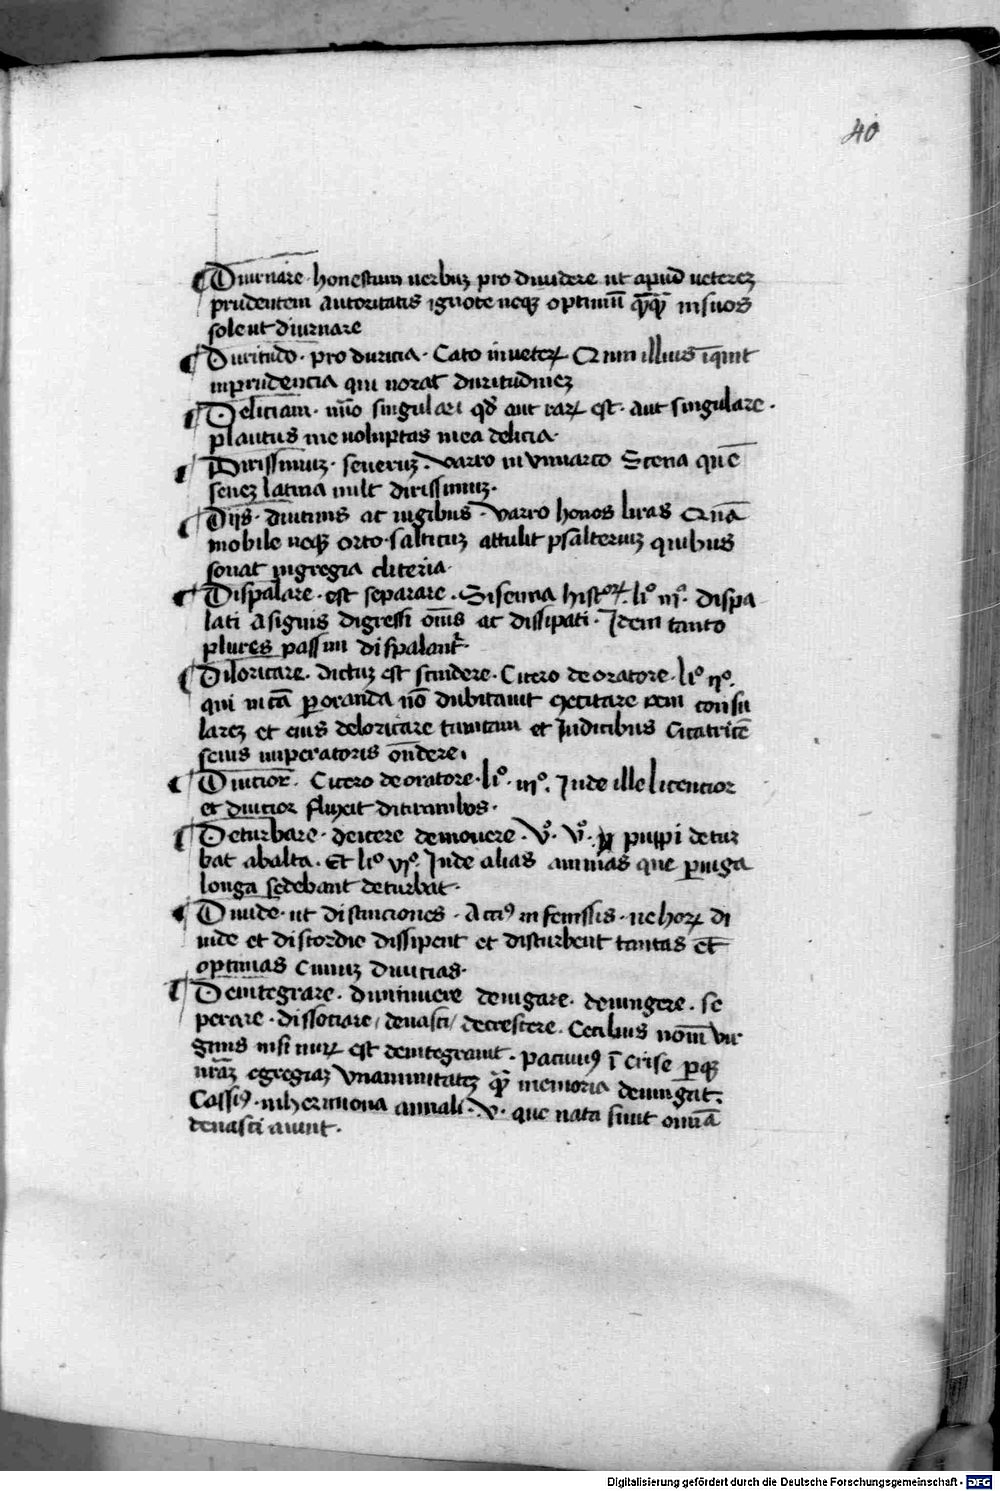 40
¶ Diurnare · honestum uerbuꝫ pro diuidere ut apud ueterez
prudentem autoritatis ignote neqꝫ optimū q̄q̄ȝ insuos
solent diurnare
¶ Duritudo · pro duricia · Cato inueterꝝ Qum illius īquit
inprudencia qui norat duritudinez
¶ Deliciam · nūo singulari qđ aut rarꝝ est · aut singulare ·
plautus me uoluptas mea delicia ·
¶ Dirissimuꝫ · seueruꝫ · varro in vnuarco Scena quē
senez latina uult dirissimuꝫ ·
¶ Dijs · diutinis ac iugibus · varro honos liras Quā
mobile neqꝫ orto · salticuꝫ attulit psalteriuꝫ quibus
sonat ingregia cliteria ·
¶ Dispalare · est separare · Sisenna histoꝝ · li° iij° · dispa
lati asignis digressi oīns ac dissipati · Idem tanto
plures passim dispalant᷑ ·
¶ Diloricare · dictuꝫ est scindere · Cicero de oratore · li° ij° ·
qui in cā ꝑoranda nō dubitauit excitare rem consu
larez et eius deloricare tunicam et Iudicibus cicatricē
senis imperatoris ondere ·
¶ Diuicior · Cicero de oratore · li° · iij° · Inde ille licencior
et diuicior fluxit ditirambos ·
¶ Deturbare · deicere demouere · V° · V° · puppi detur
bat abalta · Et li° vj° · Inde alias animas que ꝑ iuga
longa sedebant deturbat ·
¶ Diuide · ut distinciones · Acciꝰ in fenissis · ne horꝝ di
uide et discordie dissipent et disturbent tantas et
optimas ciuiuꝫ diuicias ·
¶ Deintegrare · diminuere denigare · deuingere · se
perare · dissociare / denasci / decrescere · Cecibus nomī vir
ginis nisi nurꝝ est deintegrauit · pacuuiꝰ ī crise ꝑqꝫ
nr̄aꝫ egregiaꝫ vnanimitateꝫ q̄ȝ memoria deiungat ·
Cassiꝰ · inhermiona annali · v · que nata sunt omnia
denasci aiunt ·
Digitalisierung gefördert durch die Deutsche Forschungsgemeinschaft - DFG